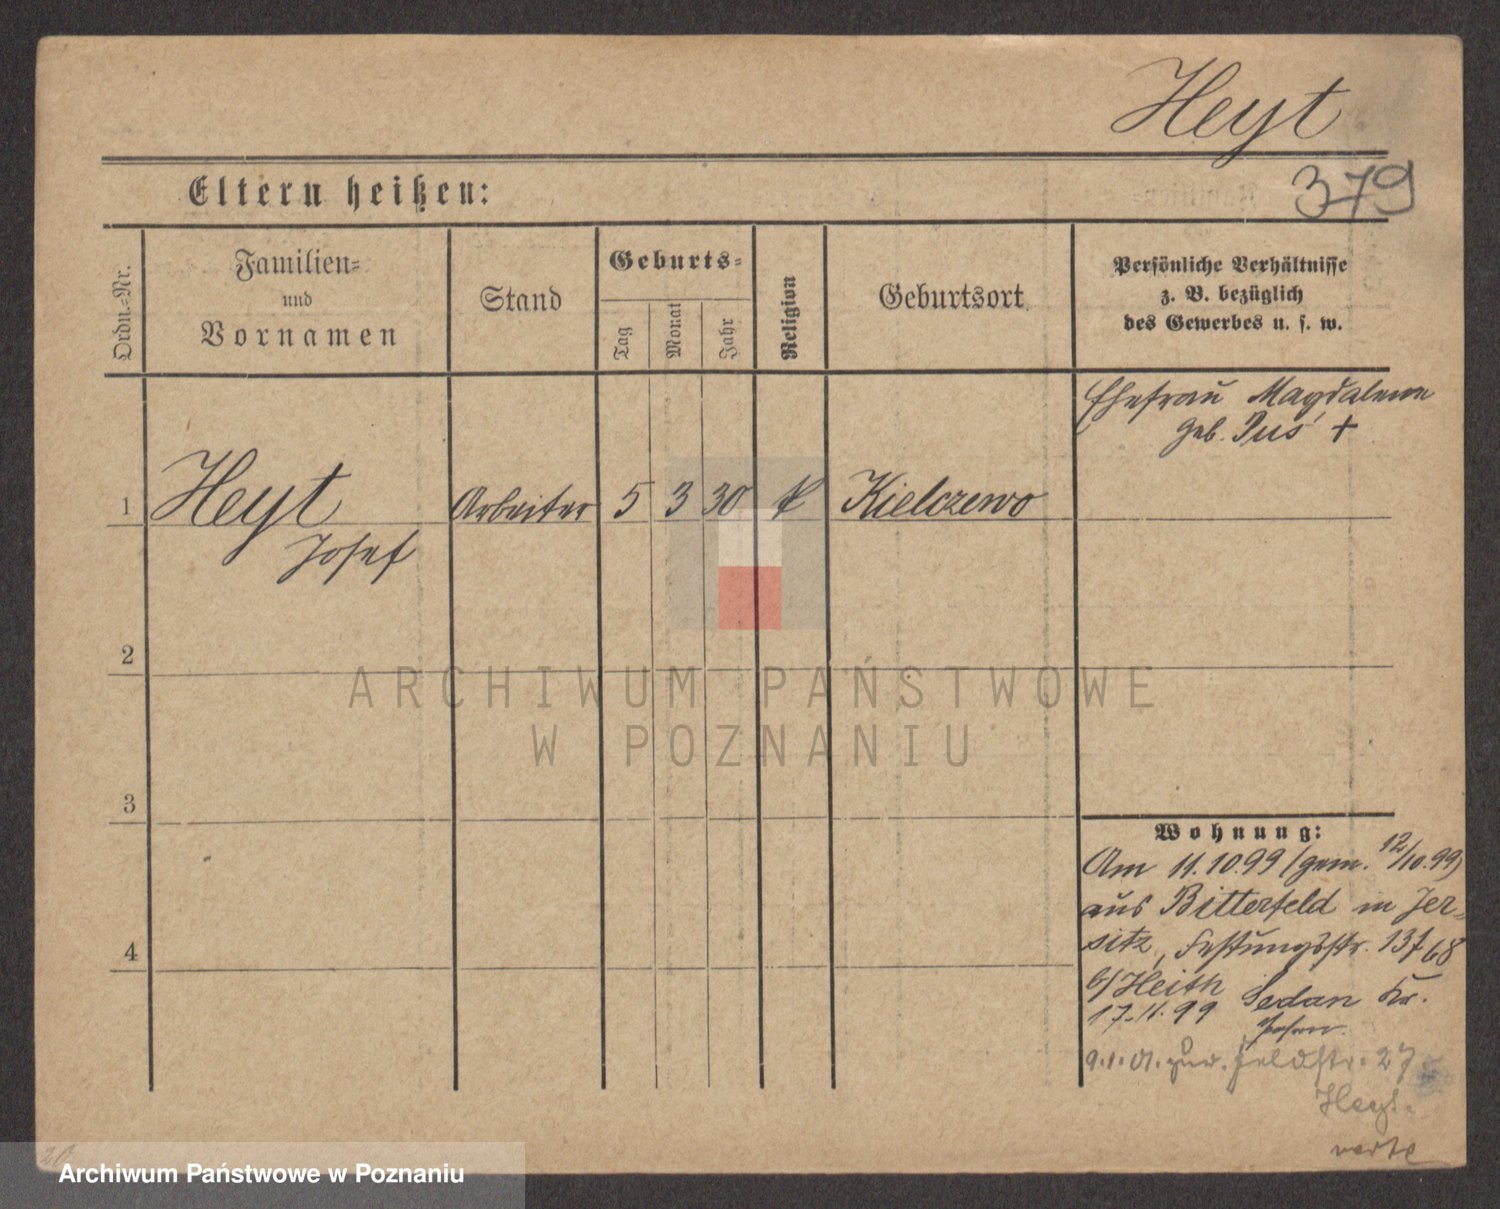 Heyt
379
Eltern heißen:
Ordn.-Nr.
Familien-
und
Vornamen
Stand
Geburts-
Tag
Monat
Jahr
Religion
Geburtsort
Persönliche Verhältnisse
z. B. bezüglich
des Gewerbes u. s. w.
Ehefrau Magdalena
geb. Pus +
1 Heyt Arbeiter 5 3 30 k Kielczewo
Josef
2
3
4
Wohnung:
Am 11.10.99 (gem. 12/10.99)
aus Bitterfeld in Jer-
sitz, Festungsstr. 137/68
b/ Heith
17.11.99 Sedan Kr.
Posen
9.1.01. zur. Feldstr. 27
Heyt.
verte
20
ARCHIWUM PAŃSTWOWE
W POZNANIU
Archiwum Państwowe w Poznaniu